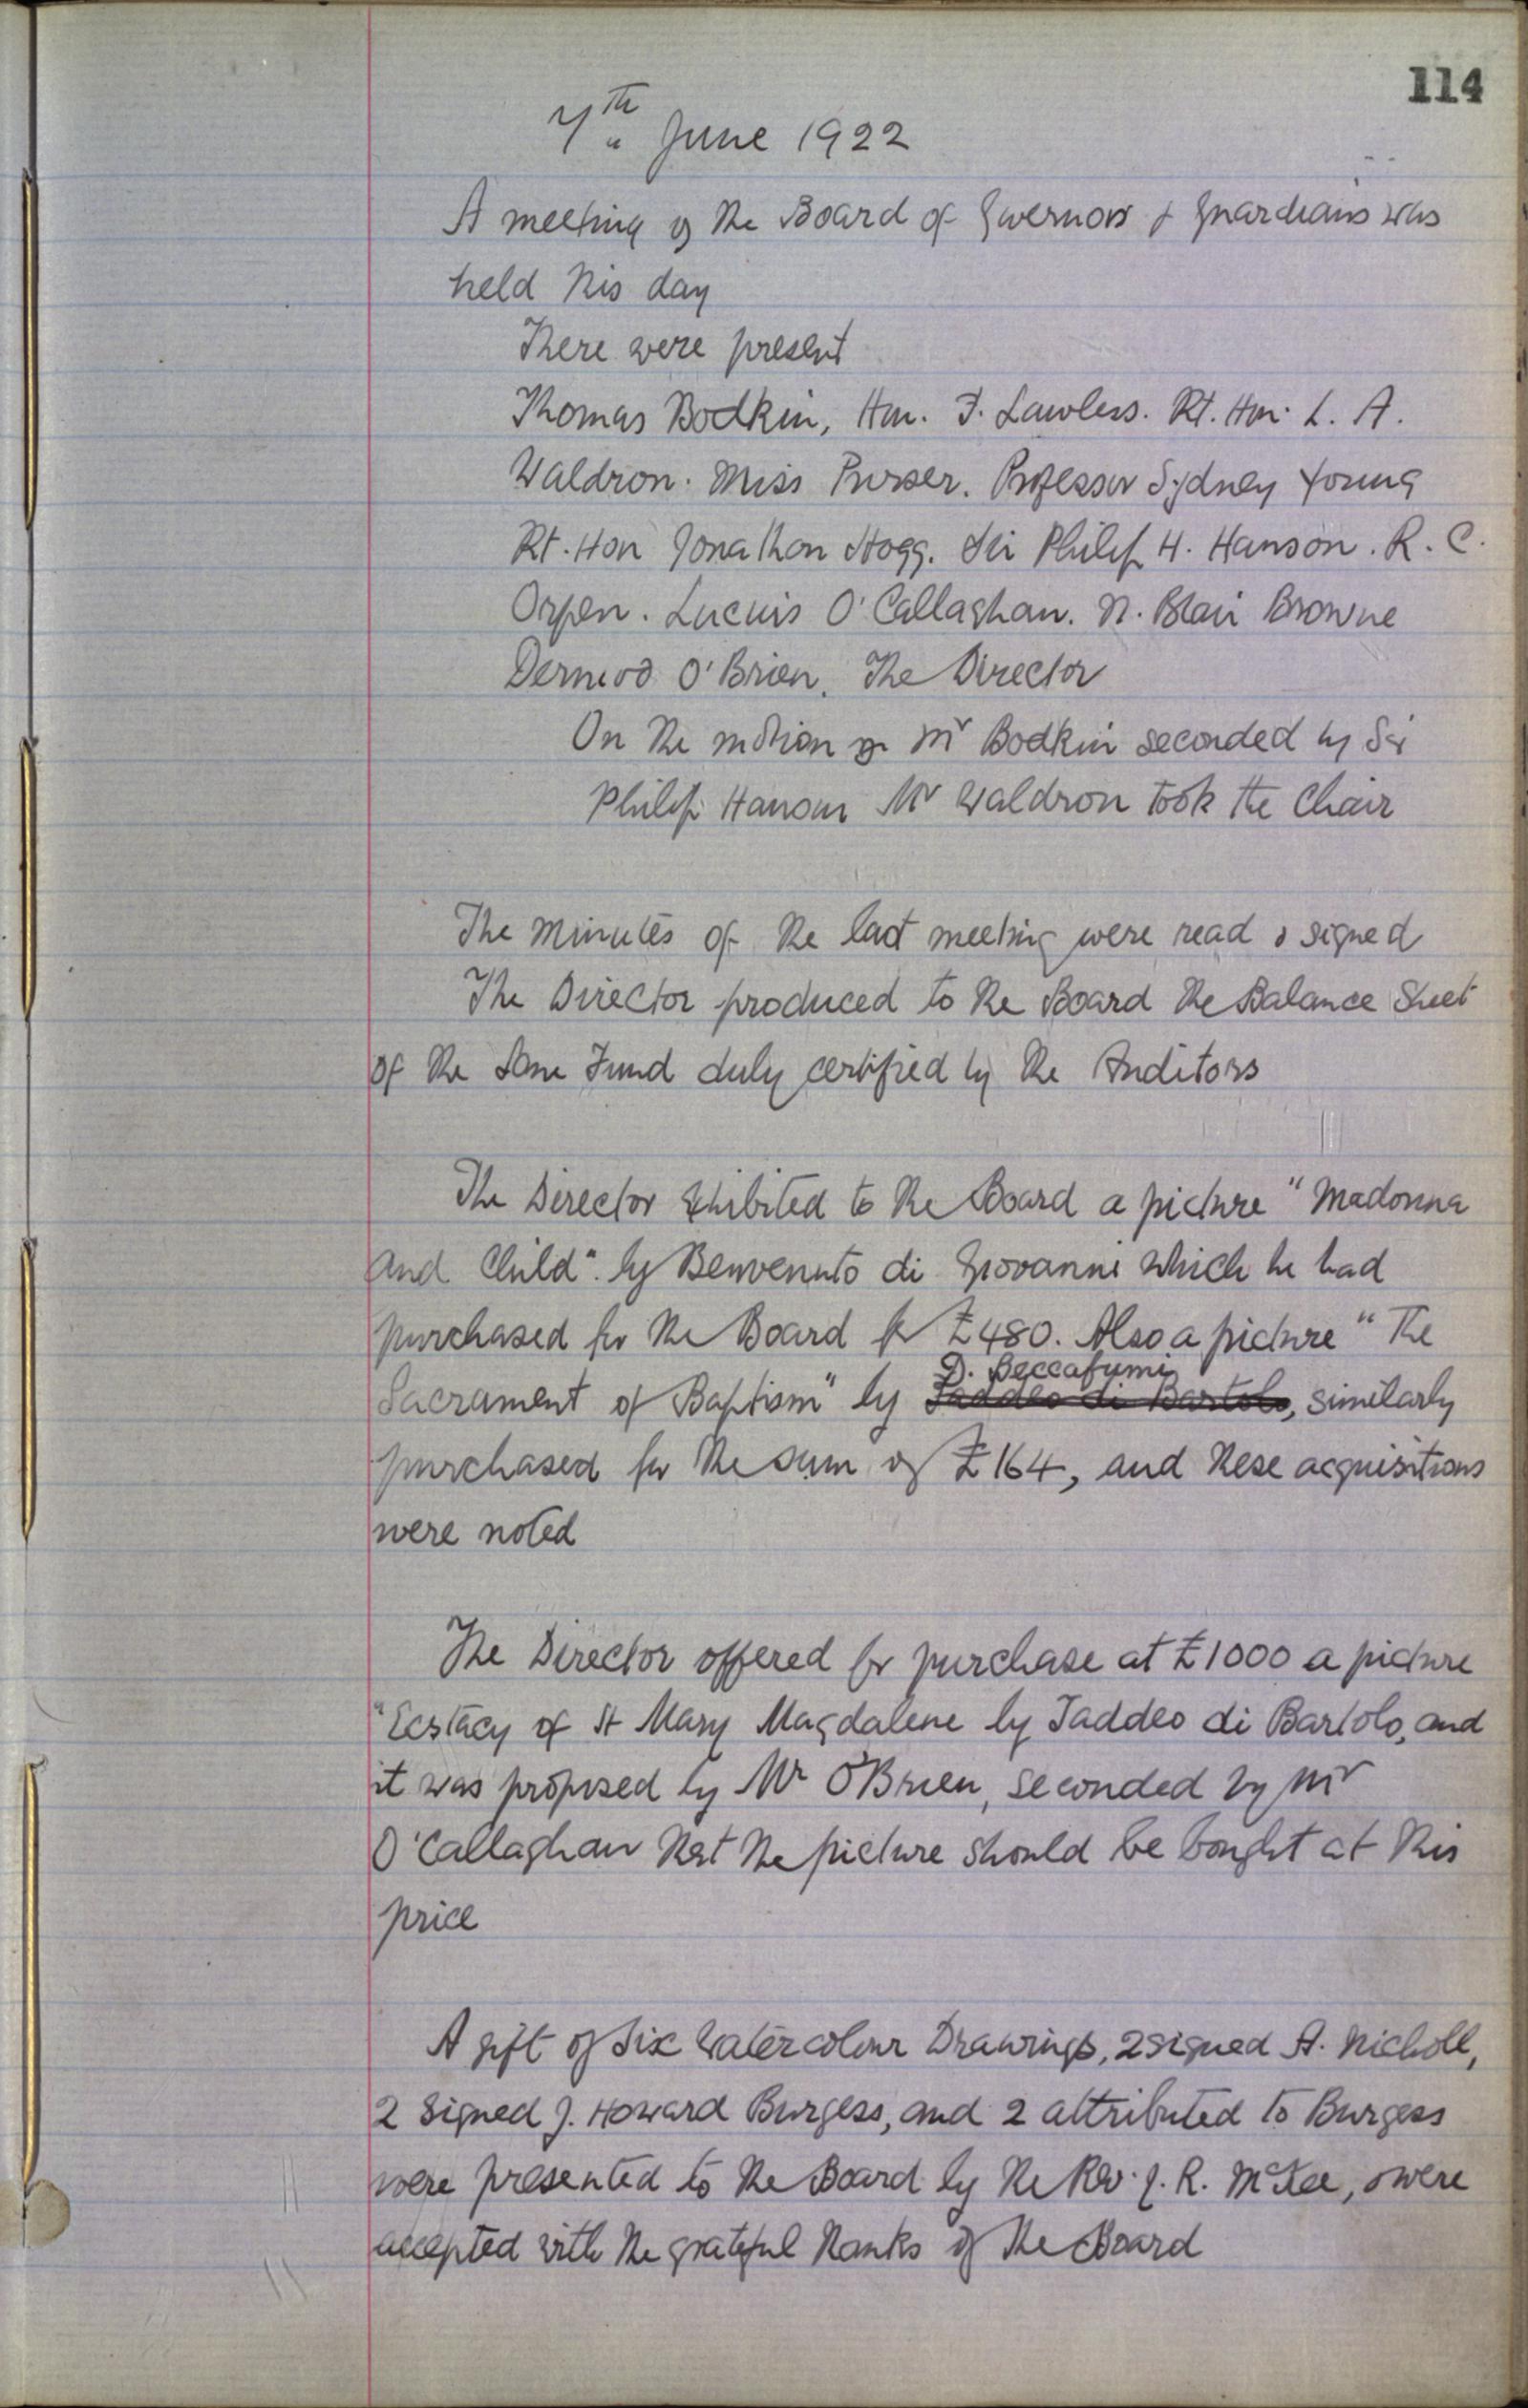 114
7th June 1922
A meeting of the Board of Governors & Guardians was
held this day
There were present
Thomas Bodkin, Hon. F. Lawless. Rt. Hon. L. A.
Waldron. Miss Purser. Professor Sydney Young
Rt. Hon Jonathon Hogg. Sir Philip H. Hanson. R. C.
Orpen. Lucius O'Callaghan. N. Blair Browne
Dermod O'Brien. The Director
On the motion of Mr Bodkin seconded by Sir
Philip Hanson Mr Waldron took the Chair
The minutes of the last meeting were read & signed
The Director produced to the Board the Balance Sheet
of the Lane Fund duly certified by the Auditors
The Director exhibited to the Board a picture "Madonna
and Child". by Benvenuto di Giovanni which he had
purchased for the Board for £480. Also a picture "The
D. Beccafumi
Sacrament of Baptism" by Taddeo di Bartolo, similarly
purchased for the sum of £164, and these acquisitions
were noted
The Director offered for purchase at £1000 a picture
"Ecstacy of St Mary Magdalene by Taddeo di Bartolo, and
it was proposed by Mr O'Brien, seconded by Mr
O'Callaghan that the picture should be bought at this
price
A gift of six Watercolour Drawings, 2 signed A. Nicholl,
2 signed J. Howard Burgess, and 2 attributed to Burgess
were presented to the Board by the Rev. J. R. McKee, & were
accepted with the grateful thanks of the Board